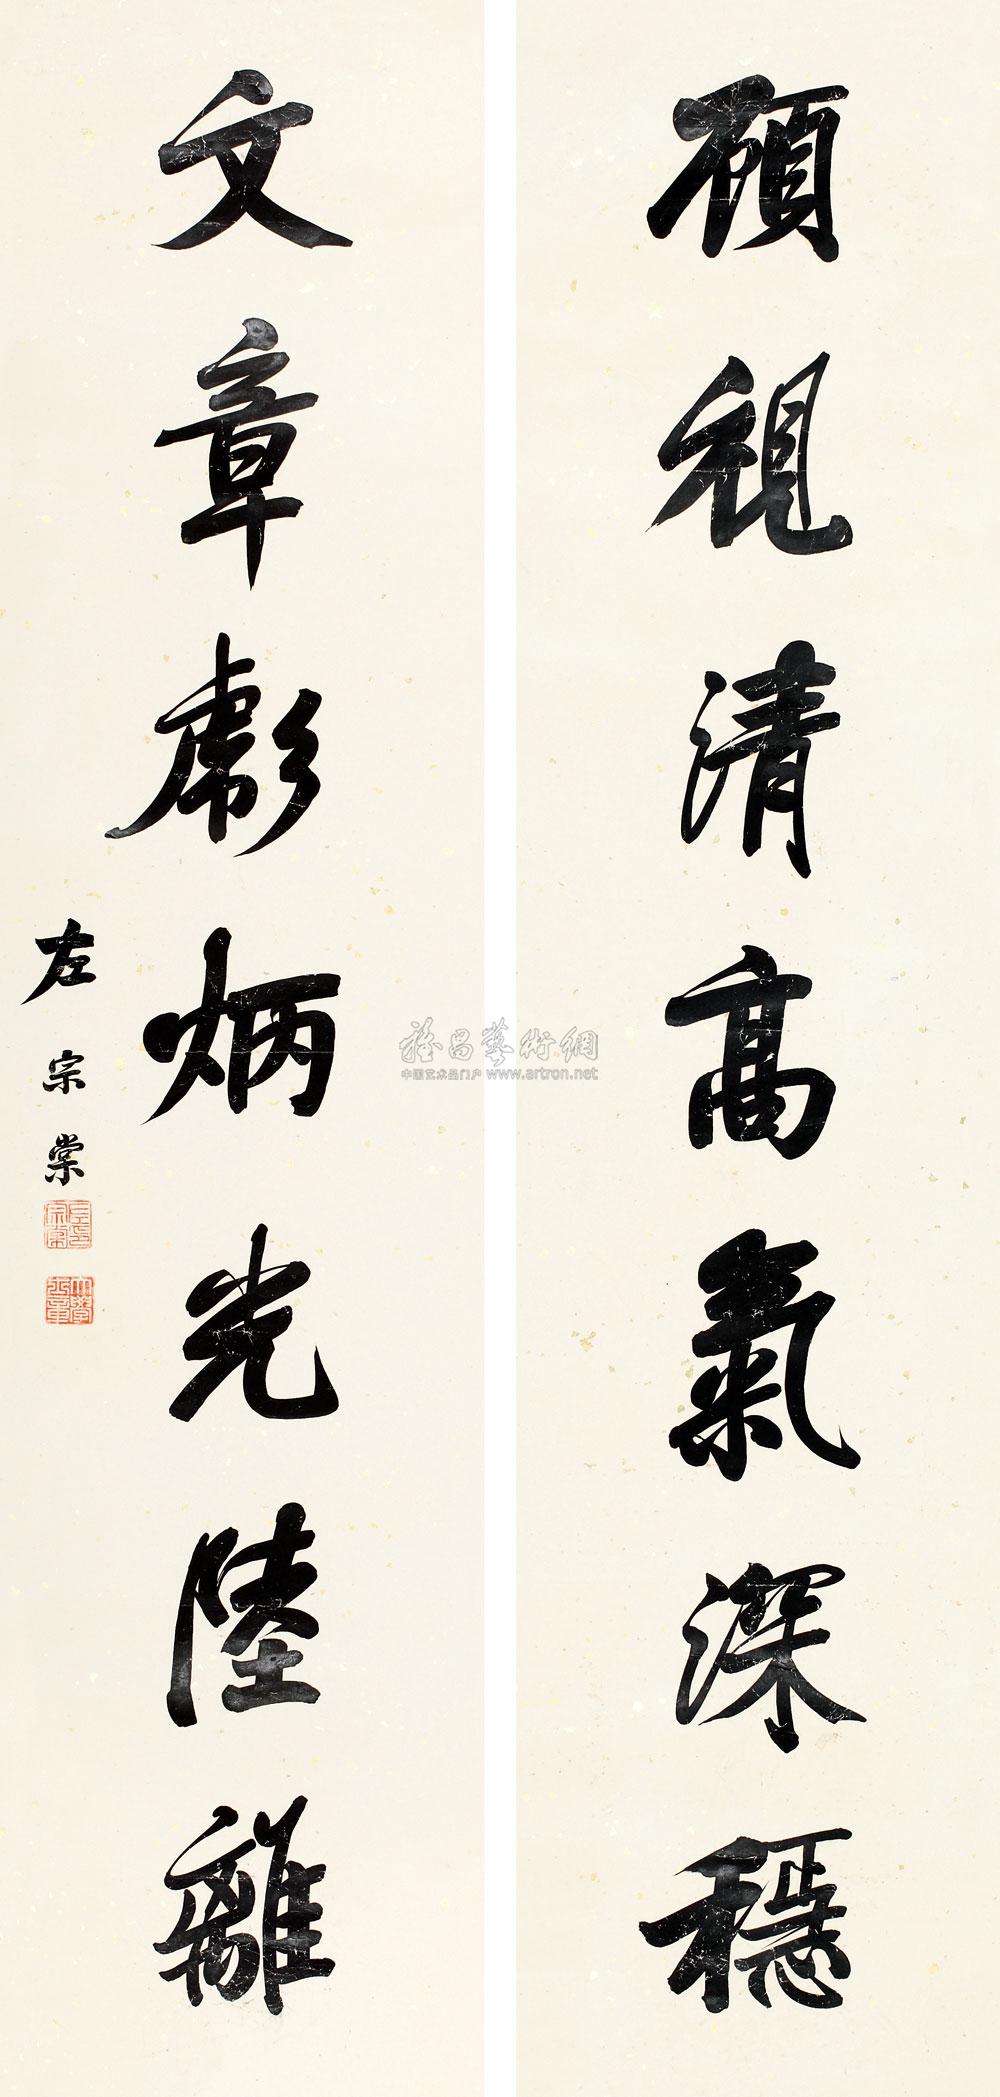 顧視清高氣深穩
文章彪炳光陸離
左宗棠
雅昌藝術網
中国艺术品门户 www.artron.net